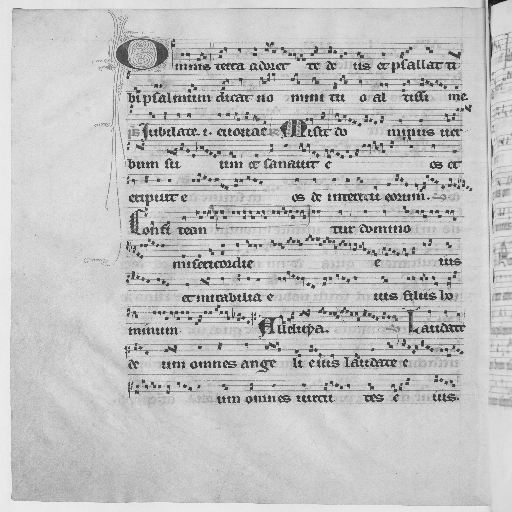 Omnis terra adoret te de us et psallat ti
bi psalmum dicat no mini tu o al tissi me.
ps Jubilate. i. euouae. Misit do minus uer
bum su um et sanauit e os et
eripuit e os de interitu eorum.
Confi tean tur domino
misericordie e ius
et mirabilia e ius filiis ho
minum Alleluya. Laudate
de um omnes ange li eius laudate e
um omnes uirtu tes e ius.